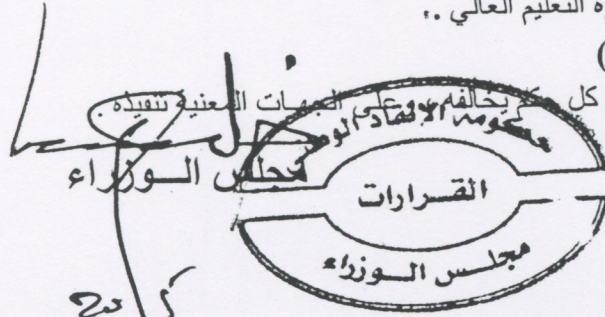 التعليم العالي ..
)
كل حكم يخالفه وعلى الجهات المعنية تنفيذه
مجلس الـوزراء
حكومة الإنقاذ الو
القـرارات
مجلـس الـوزراء